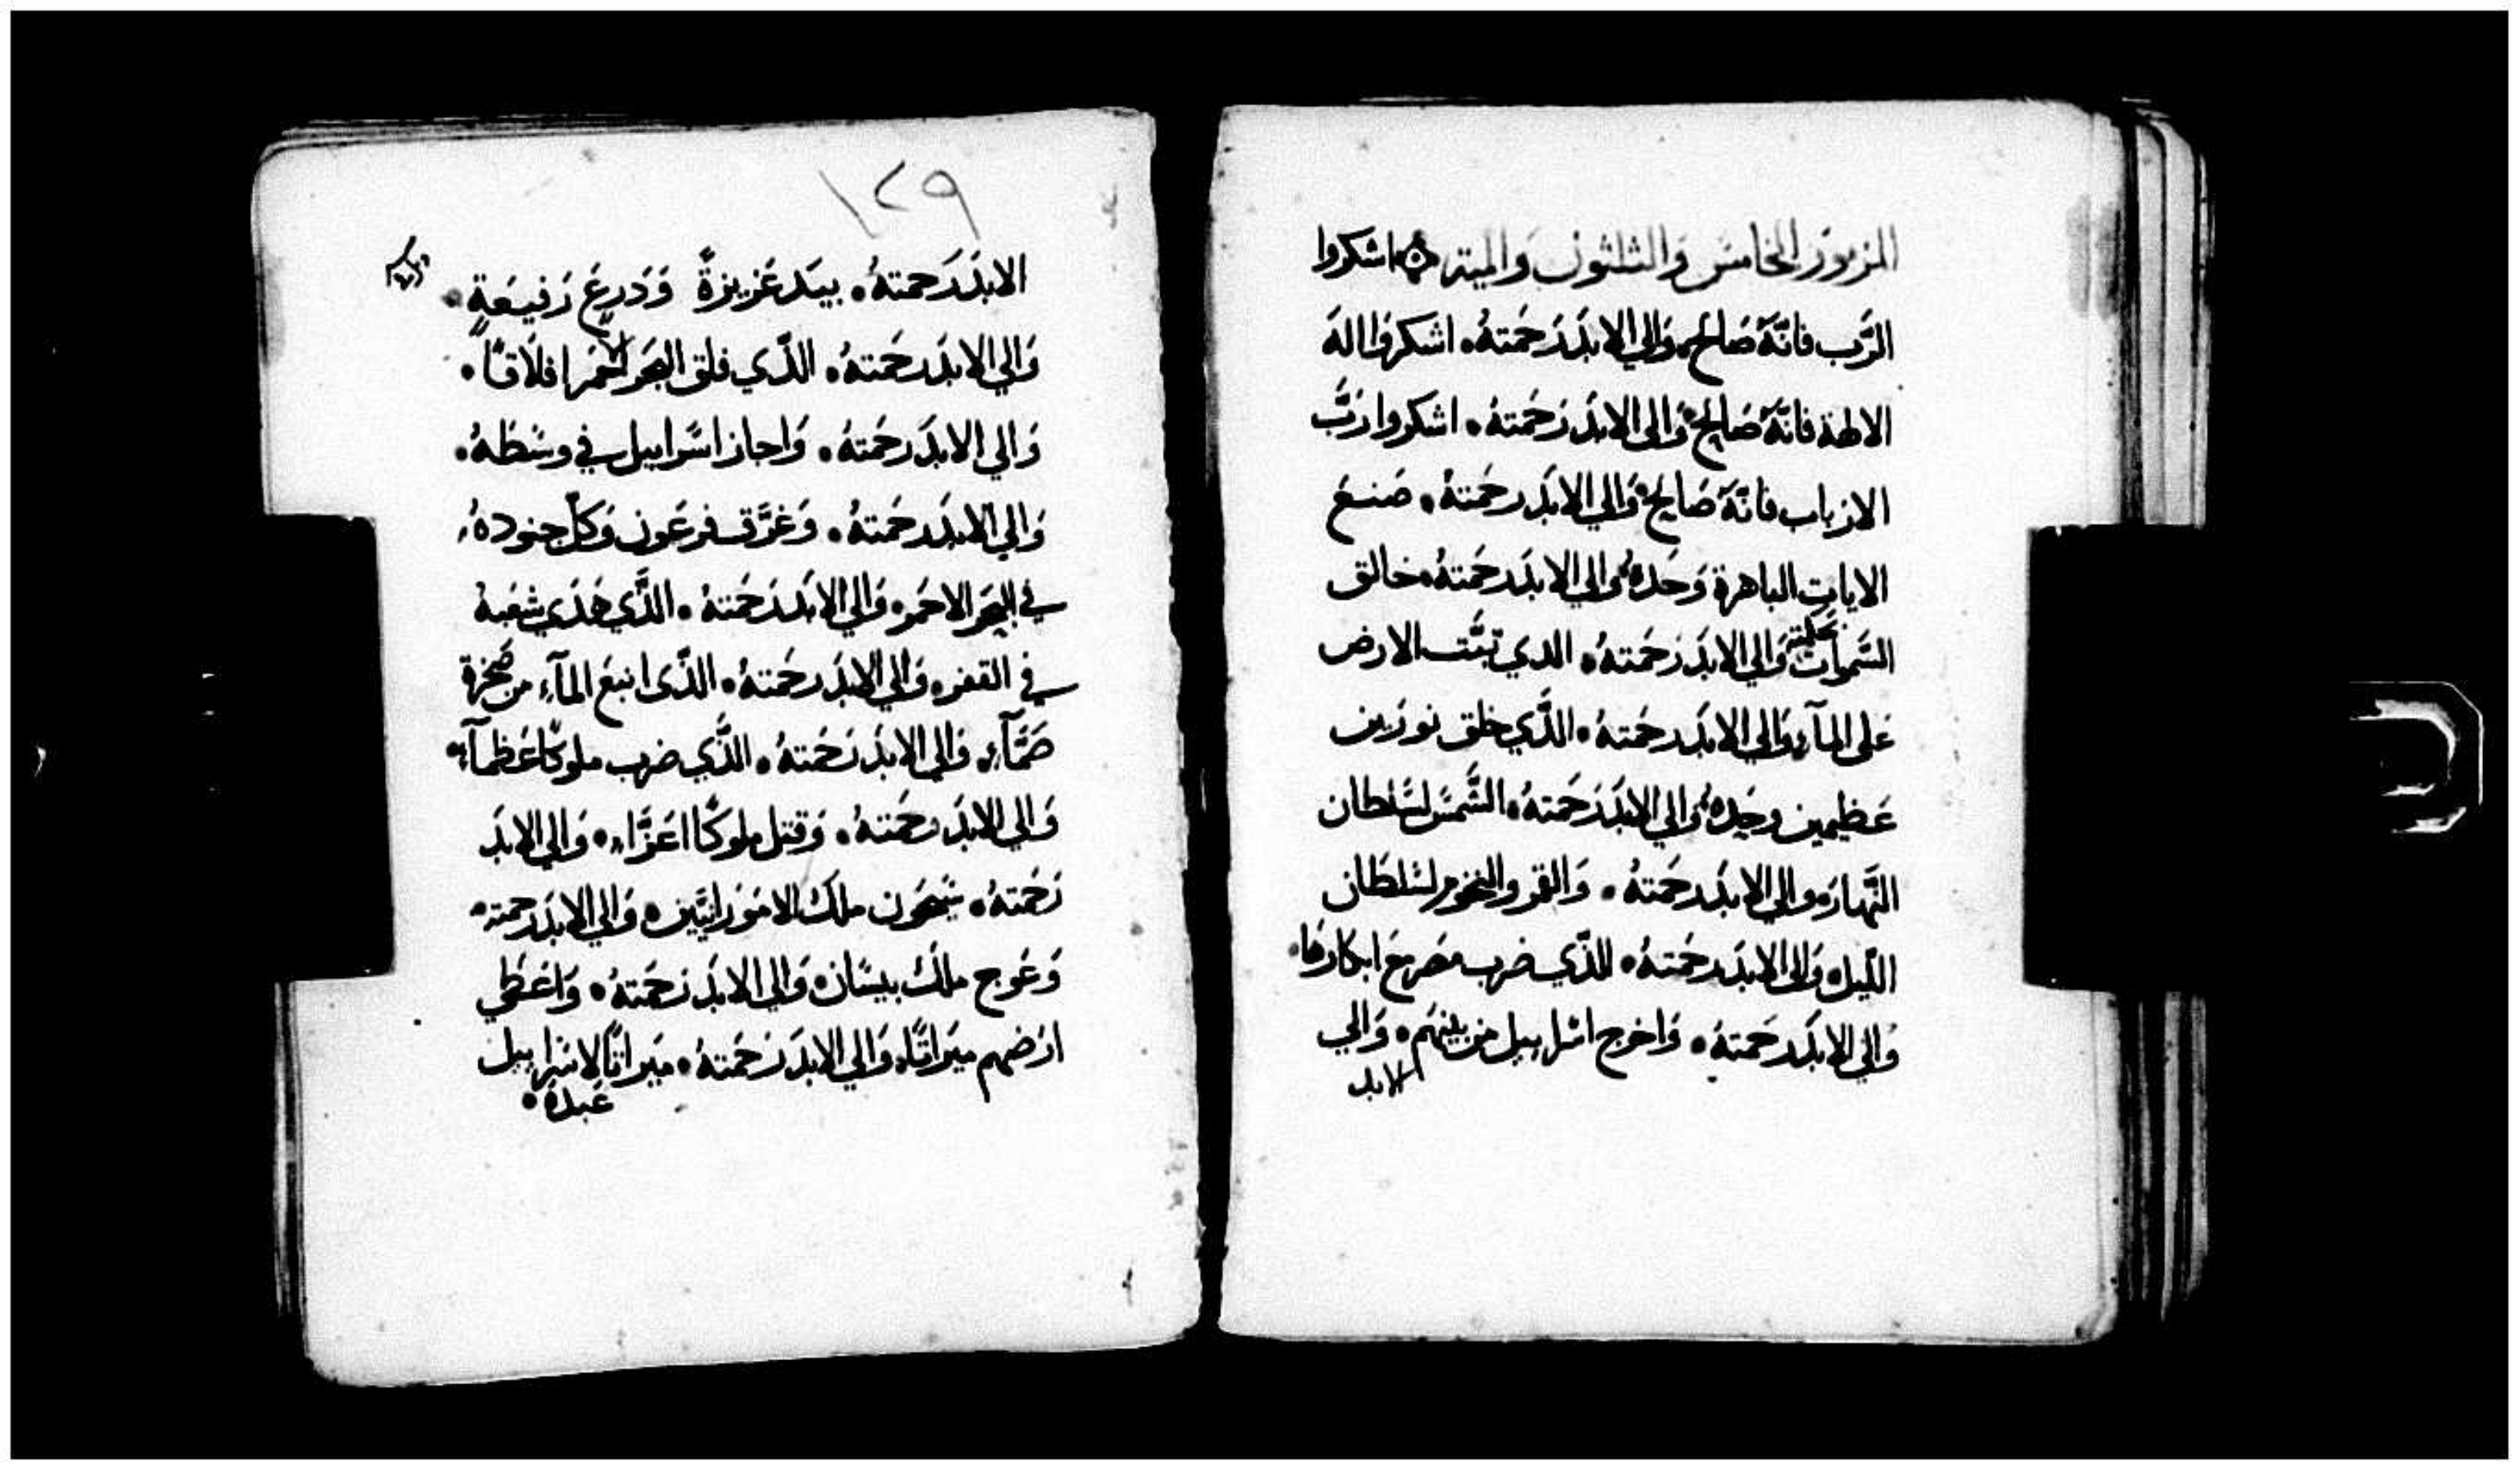 المزمور الخامس والثلثون والمية اشكروا
الرَّب فانّهَ صَالح. وَالي الابدَ رَحمَتهُ. اشكروَا اله
الالهة فانّهَ صَالح وَالى الابدَ رَحمَتهُ. اشكروا رَبَّ
الارباب فانّهَ صَالح وَالي الابدَ رحمَتهُ. صَنعَ
الايات الباهرة وَحَدهُ وَالي الابدَ رحمَتهُ. خالق
السَّموات بحكمته وَالي الابدَ رَحمَتهُ. الدي ثبَّت الارض
عَلى المآء وَالي الابدَ رحمَتهُ. الذَّي خلق نورَين
عَظيمين وحَدهُ وَالي الابدَ رَحمَتهُ. الشَّمسَ لسَلطان
النَّهار. وَالي الابدَ رحمَتهُ. وَالقمر والنجوم لسَلطَان
اللّيل. وَالى الابدَ رحمَتهُ. الذّي ضرب مصر مَع ابكارهَا.
وَالي الابدَ رحمَتهُ. وَاخرج اسْراييل من بينهَم. وَالي
الابد
١٢٩
الابدَ رَحمتهُ. بيَد عَزيزةً وَدرعَ رَفيعَةٍ.
وَالي الابدَ رحَمتهُ. الذّي فلق البحَر الاحمَر افلاَقاً.
وَالي الابدَ رحَمتهُ. وَاجاز اسَراييل في وسَطهُ.
وَالي الابدَ رحَمتهُ. وَغرَّق فرعَون وَكلّ جنودهُ
في البحَر الاحمَر. وَالي الابدَ رَحَمتهُ. الذَّي هَدَي شعَبهُ
في القفر. وَالي الابدَ رحَمتهُ. الذّى انبعَ المآء من صَخرة
صَمَّآء. وَالي الابدَ رَحَمتهُ. الذَّي ضرب ملوكًا عَظمآء.
وَالي الابدَ رحَمتهُ. وَقتل ملوكًا اعَزَّاء. وَالي الابدَ
رَحَمتهُ. سَيحَون ملك الامَورَانيَّين. وَالي الابدَ رحمته.
وَعَوج ملك بيسَان. وَالي الابدَ رَحَمتهُ. وَاعَطي
ارَضهم ميَراثًا. وَالي الابدَ رَحَمتهُ. ميَراثًا لاسَراييل
عَبدهِ.